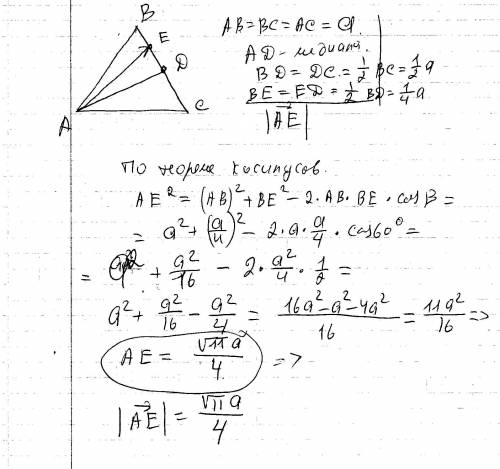 B
E
D
A
C
AB = BC = AC = a
AD - медиана.
BD = DC = 1/2 BC = 1/2 a
BE = ED = 1/2 BD = 1/4 a
|AE|
По теореме косинусов.
AE² = (AB)² + BE² - 2·AB·BE·cosB =
= a² + (a/4)² - 2·a·a/4·cos60° =
= a² + a²/16 - 2·a²/4·1/2 =
a² + a²/16 - a²/4 = (16a² - a² - 4a²)/16 = 11a²/16 =>
AE = √11 a/4 =>
|AE| = √11 a/4